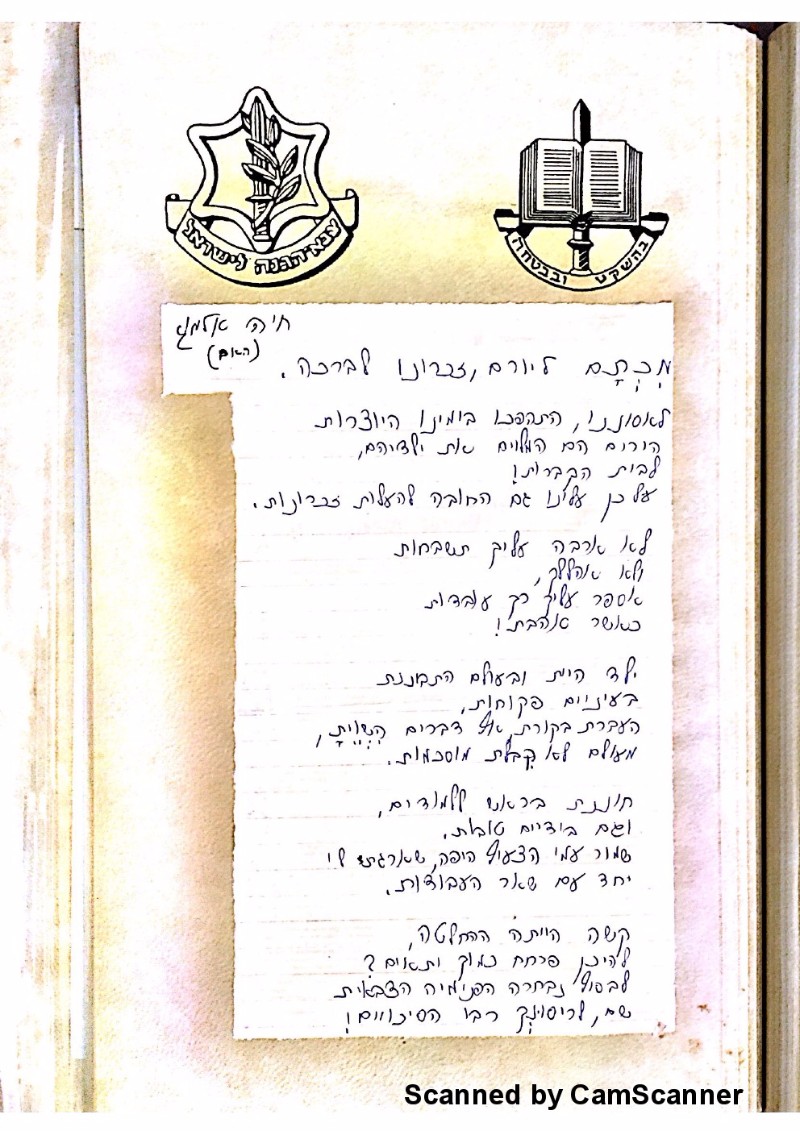 צבא הגנה לישראל
בהשקט ובבטחה
חיה אלמוג
(האם)
מִכְתָּם ליורם, זכרונו לברכה.
לאסוננו, התהפכו בימינו היוצרות
הורים הם המלוים את ילדיהם,
לבית הקברות!
על כן עלינו גם החובה להעלות זכרונות.
לא ארבה עליך תשבחות
ולא אהללך,
אספר עליך רק עובדות
כאשר אהבת!
ילד היית ובעולם התבוננת
בעיניים פקוחות,
העברת בקורת, אף דברים הִשְׁוֵיתָ,
מעולם לא קִבלת מוסכמות.
חוננת בראש ללמודים,
וגם בידיים טובות.
שמור עמי הצעיף היפה, שארגת לי
יחד עם שאר העבודות.
קשה הייתה ההחלטה,
להיכן פרחח כמוך יתאים?
לבסוף נבחרה הפנימיה הצבאית
שם, לריסונְךָ רבו הסיכויים!
Scanned by CamScanner